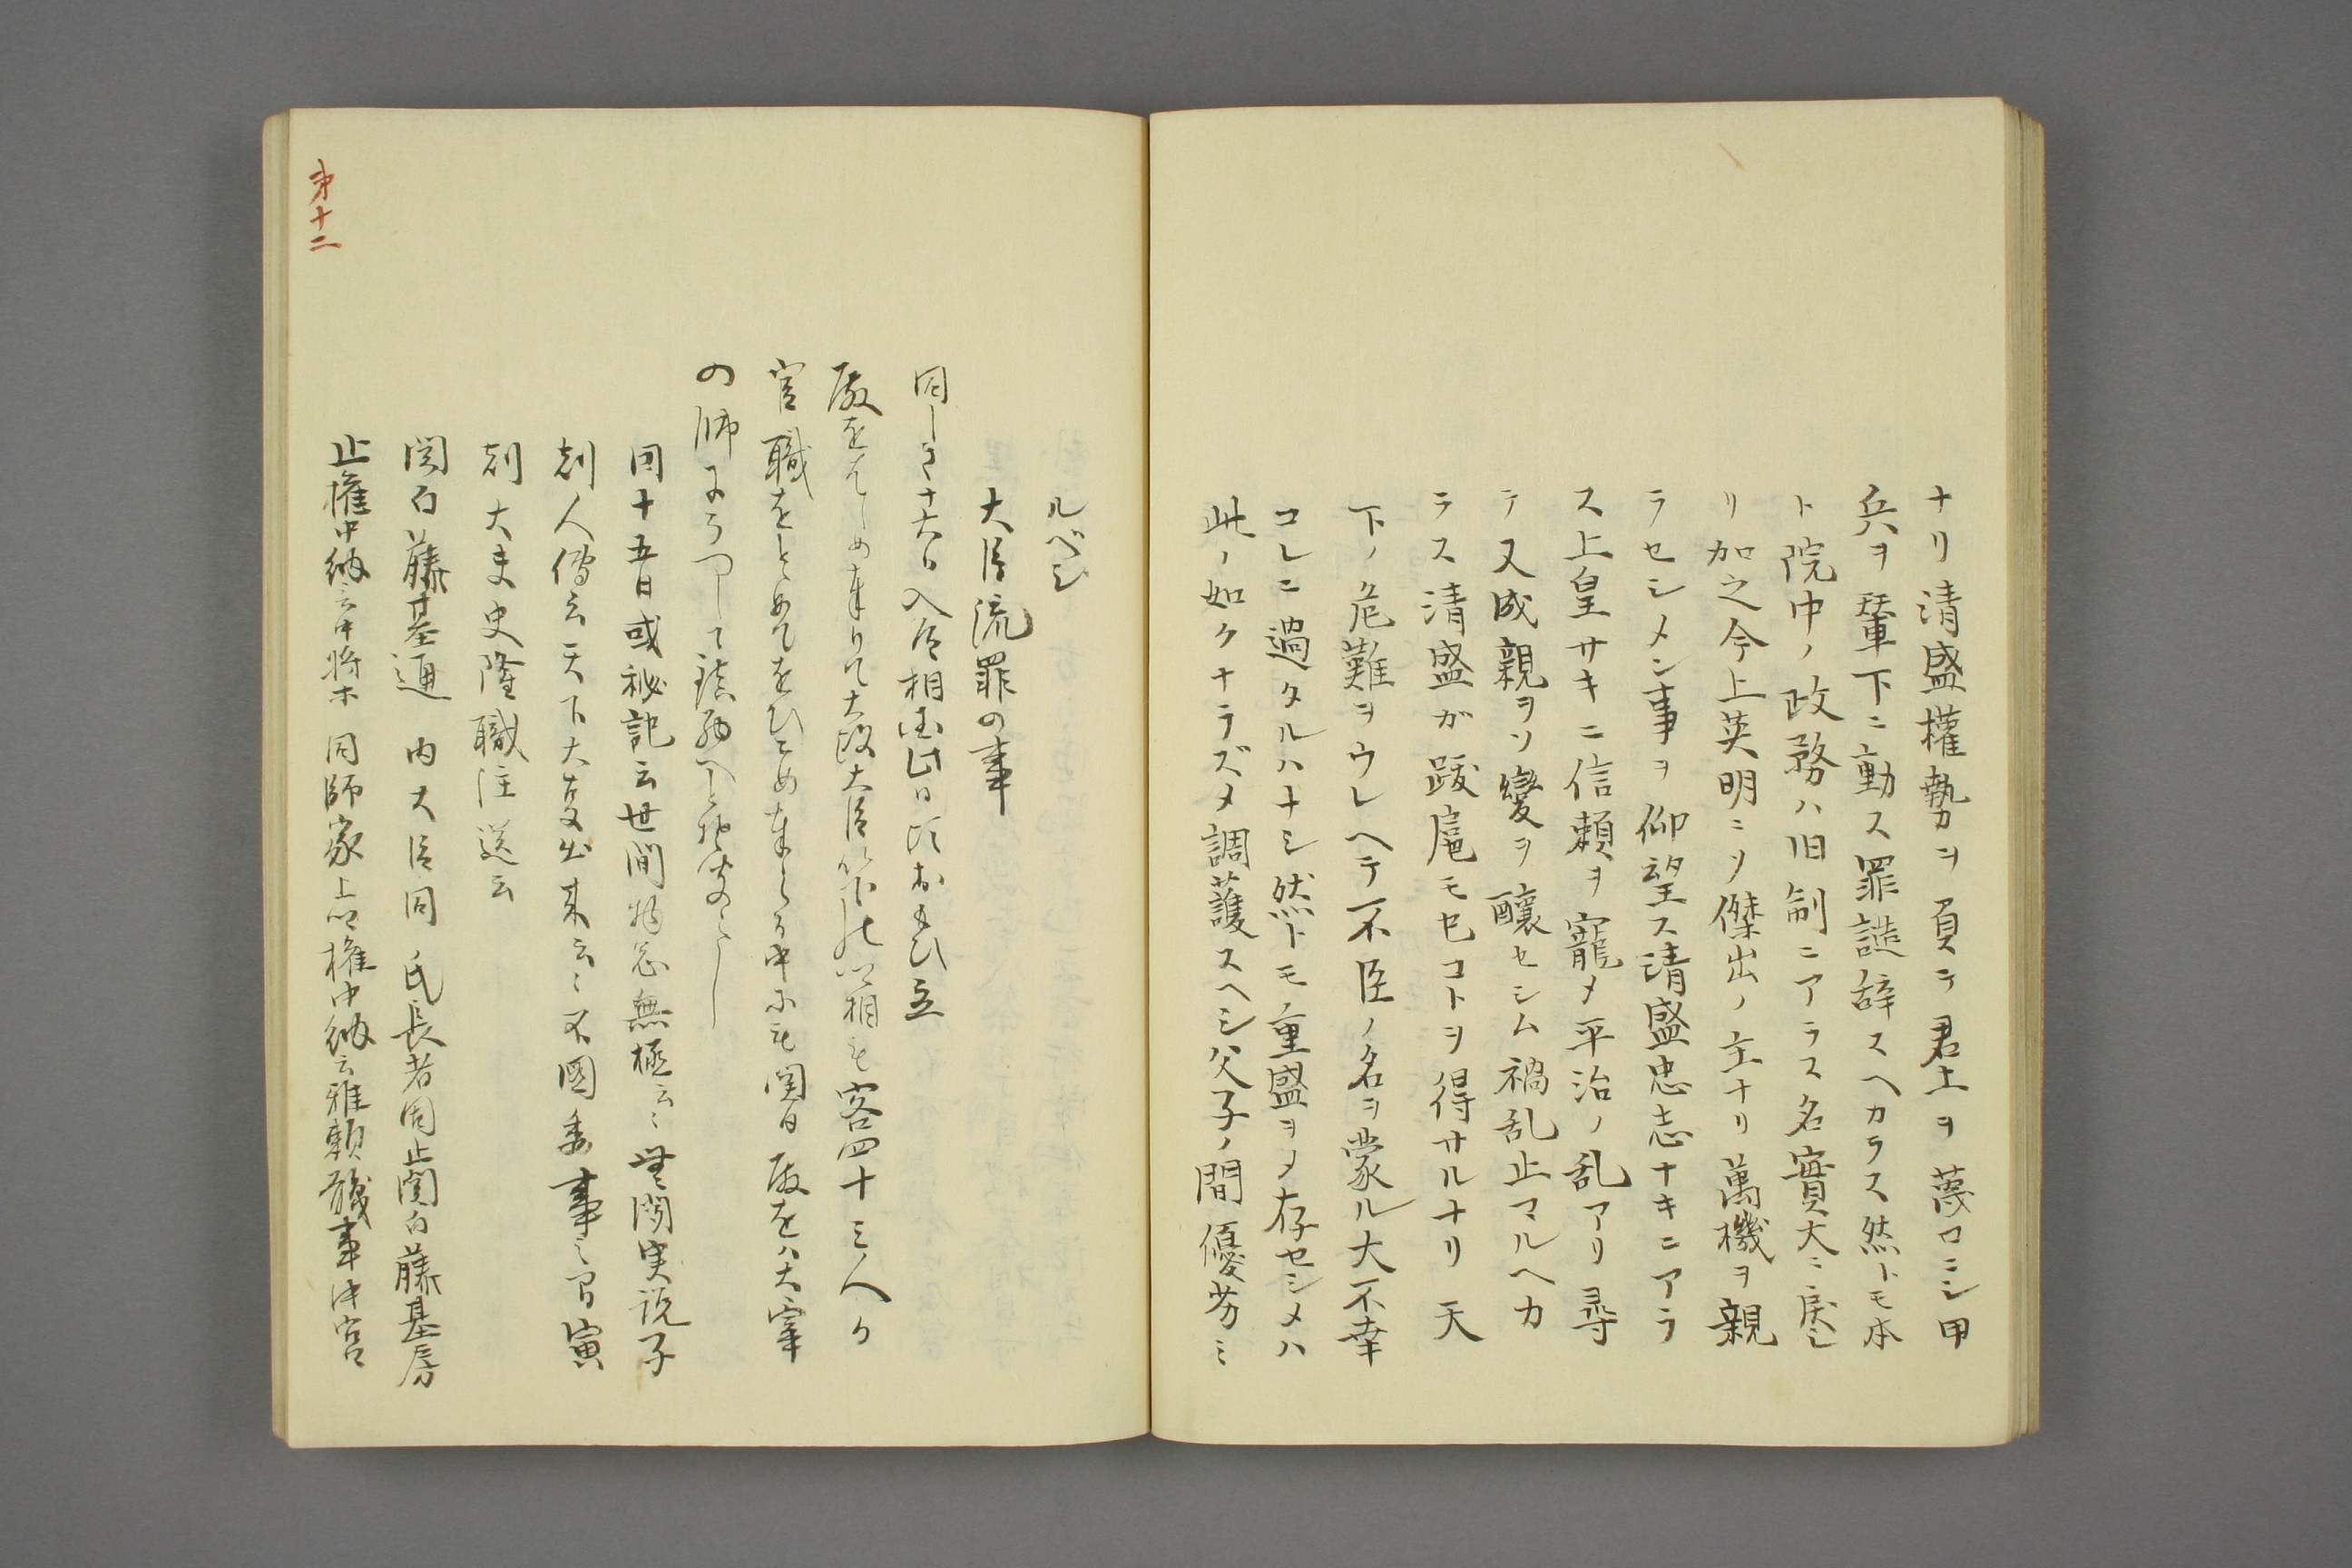 ナリ清盛權勢ヲ負テ君上ヲ蔑コニシ甲
兵ヲ輦下ニ動ス罪譴辞スヘカラス然トモ本
ト院中ノ政務ハ旧制ニアラス名實大ニ戻レ
リ加之今上英明ニソ傑出ノ主ナリ萬機ヲ親
ラセシメン事ヲ仰望ス清盛忠志ナキニアラ
ス上皇サキニ信頼ヲ寵メ平治ノ乱アリ尋
テ又成親ヲソ變ヲ醸セシム禍乱止マルヘカ
ラス清盛が跋扈モ已コトヲ得サルナリ天
下ノ危難ヲウレヘテ不臣ノ名ヲ蒙ル大不幸
コレニ過タルハナシ然トモ重盛ヲメ存セシメハ
此ノ如クナラズメ調護スヘシ父子ノ間優芳ミ
ルベシ
大臣流罪の事
同しき十六日入道相国此日頃おもひ立
殿をはしめ奉りて太政大臣以下の公卿 四十三人か
官職をとゝめておひこめ奉らる中にも関白殿をハ大宰
の帥にうつして鎮西へと聞えし
同十五日或秘記云世間物忩無極云々無聞実説子
刻人傳云天下大事出来云々不圖委事之間寅
刻大夫史隆職注送云
関白藤基通 内大臣同 氏長者同止関白藤基房
止權中納言中将等 同師家 止權中納言雅頼職事中宮
第十二